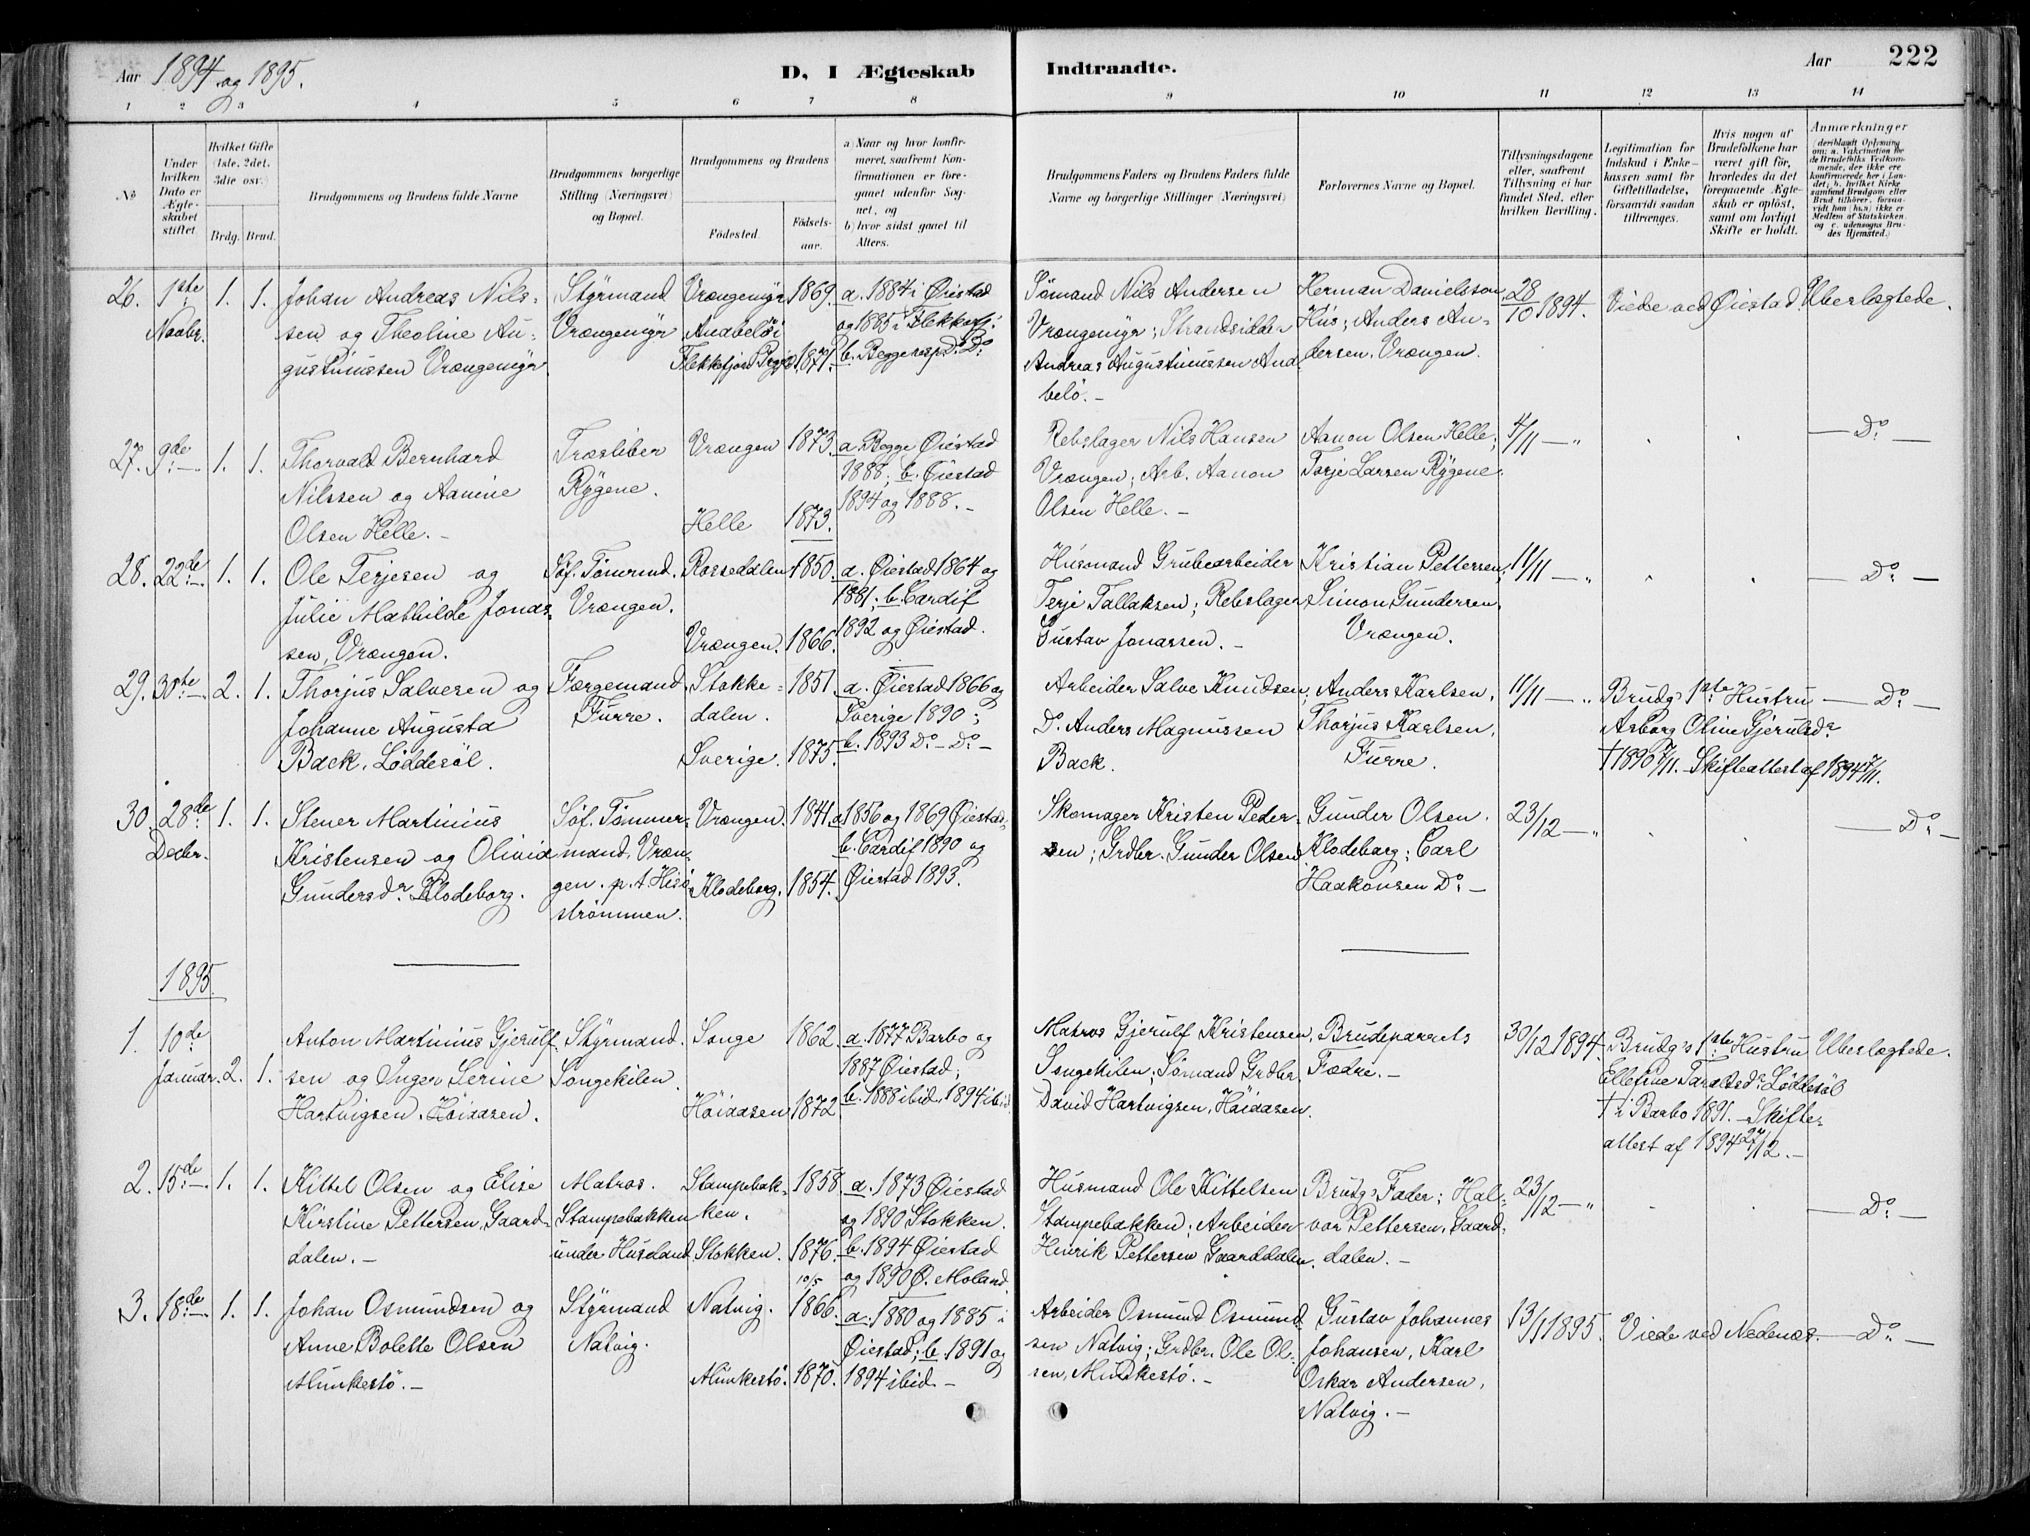 Aar 1894 og 1895.
D, I Ægteskab
Indtraadte.
Aar 222
1 2 3 4 5 6 7 8 9 10 11 12 13 14
No
Under hvilken Dato er Ægteskabet stiftet
Hvilket Gifte (1ste, 2det, 3die osv.)
Brdg. Brud.
Brudgommens og Brudens fulde Navne
Brudgommens borgerlige Stilling (Næringsvei) og Bopæl.
Brudgommens og Brudens
Fødested.
Fødselsaar.
a) Naar og hvor konfirmeret, saafremt Konfirmationen er foregaaet udenfor Sognet, og
b) hvor sidst gaaet til Alters.
Brudgommens Faders og Brudens Faders fulde Navne og borgerlige Stillinger (Næringsvei)
Forlovernes Navne og Bopæl.
Tillysningsdagene eller, saafremt Tillysning ei har fundet Sted, efter hvilken Bevilling.
Legitimation for Indskud i Enkekassen samt for Giftetilladelse, forsaavidt saadan tiltrænges.
Hvis nogen af Brudefolkene har været gift før, hvorledes da det foregaaende Ægteskab er opløst, samt om lovligt Skifte er holdt.
Anmærkninger (deriblandt Oplysning om: a. Vakcination for de Brudefolks Vedkommende, der ikke ere konfirmerede her i Landet; b. hvilket Kirkesamfund Brudgom eller Brud tilhører, forsaavidt han (hun) ikke er Medlem af Statskirken, og c. udensogns Brudes Hjemsted.)
26. 1ste Novbr. 1. 1.
Johan Andreas Nils-
sen og Theoline Au-
gustinussen Vrængemyr
Styrmand
Vrængemyr
Vrængemyr 1869.
Anabelö i
Flekkefjord 1871.
a. 1884 i Öiestad
og 1885 i Flekkefj.
b. Begge resp. Do. Do.
Sömand Nils Andersen
Vrængemyr; Strandsidder
Andreas Augustinussen Ana-
belö. -
Herman Danielsson
Hus; Anders An-
dersen, Vrængen.
28/10 1894.
Viede ved Öiestad.
Uberlægtede.
27. 9de -. 1. 1.
Thorvald Bernhard
Nilssen og Aanine
Olsen Helle. -
Træsliber
Rygene.
Vrængen 1873.
Helle 1873.
a. Begge Öiestad
1888; b. Öiestad
1894 og 1888. -
Rebslager Nils Hansen
Vrængen; Arb. Aanon
Olsen Helle. -
Aanon Olsen Helle;
Torje Larsen Rygene.
4/11 - "
- Do. -
28. 22de -. 1. 1.
Ole Terjesen og
Julie Mathilde Jonas-
sen, Vrængen.
Söf. Tömrmd.
Vrængen.
Rossedalen 1850.
Vrængen. 1866.
a. Öiestad 1864 og
1881; b. Cardif
1892 og Öiestad.
Husmand Grubearbeider
Terje Tallaksen; Rebslager
Gustav Jonassen. -
Kristian Pettersen,
Simon Gundersen,
Vrængen.
11/11 - "
- Do. -
29. 30te -. 2. 1.
Thorjus Salvesen og
Johanne Augusta
Back, Löddesöl.
Færgemand
Furre.
Stokke- 1851.
dalen.
Sverige. 1875.
a. Öiestad 1866 og
Sverige 1890;
b. 1893 Do. - Do. -
Arbeider Salve Knudsen;
Do. Anders Magnussen
Back.
Anders Karlsen,
Thorjus Karlsen,
Furre.
11/11 - "
Brudgs 1ste Hustru
Asborg Oline Gjerulsdr
† 1890 /11. Skifteattest af 1894 /11.
- Do. -
30. 28de Decbr. 1. 1.
Stener Martinius
Kristensen og Olivia
Gundersdr Klodeborg.
Söf. Tömmer-
mand, Vræn-
gen. p. t. Hisö-
strömmen.
Vrængen. 1841.
Klodeborg. 1854.
a 1856 og 1869 Öiestad.
b. Cardif 1890 og
Öiestad 1893.
Skomager Kristen Peder-
sen; Grdbr. Gunder Olsen
Gunder Olsen.
Klodeborg; Carl
Haakonsen Do. -
23/12 - "
- Do. -
1895
1. 10de Januar. 2. 1.
Anton Martinius Gjerulf-
sen og Inger Serine
Hartvigsen, Höiaasen.
Styrmand.
Songekilen.
Songe 1862.
Höiaasen 1872
a. 1877 Barbo og
1887 Öiestad;
b. 1888 ibid, 1894 ibid
Matros Gjerulf Kristensen,
Songekilen; Sömand Grdbr.
David Hartvigsen, Höiaasen.
Brudeparrets
Fædre. -
30/12 1894.
Brudgs 1ste Hustru
Ellefine Taraldsdr Löddesöl
† i Barbo 1891. - Skifte-
attest af 1894 27/12. -
Uberlægtede.
2. 15de -. 1. 1.
Kittel Olsen og Elise
Kirstine Pettersen, Gaard-
dalen. -
Matros.
Stampebakken
under Huseland
Stampebak- 1858
ken.
Stokken. 1876.
10/5
a. 1873 Öiestad
og 1890 Stokken.
b. 1894 Öiestad
og 1890 Ö. Moland.
Husmand Ole Kittelsen
Stampebakken; Arbeider
Henrik Pettersen Gaarddalen.
Brudgs Fader; Hal-
vor Pettersen, Gaard-
dalen. -
23/12 - "
- Do. -
3. 18de -. 1. 1.
Johan Osmundsen og
Anne Bolette Olsen
Munkestö. -
Styrmand
Natvig.
Natvig. 1866.
Munkestö. 1870.
a. 1880 og 1885 i
Öiestad; b. 1891 og
1894 ibid. -
Arbeider Osmund Osmund-
sen Natvig; Grdbr. Ole Ol-
sen, Munkestö. -
Gustav Johannes
Johansen, Karl
Oskar Andersen,
Natvig. -
13/1 1895.
Viede ved Nedenæs.
- Do. -